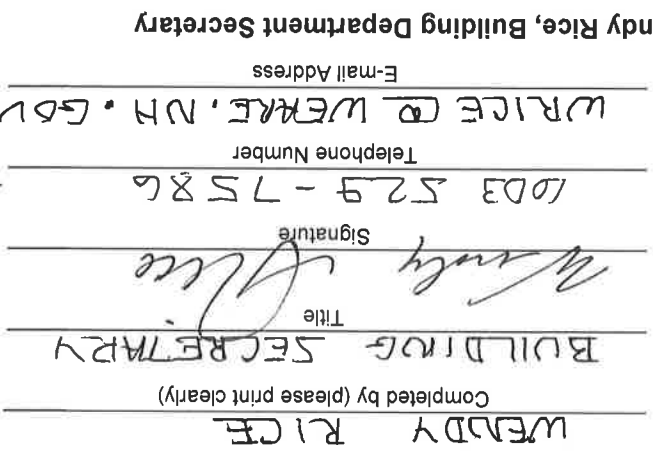 WENDY RICE
Completed by (please print clearly)
BUILDING SECRETARY
Title
Wendy Rice
Signature
603 529-7586
Telephone Number
WRICE@WEARE.NH.GOV
E-mail Address
ndy Rice, Building Department Secretary